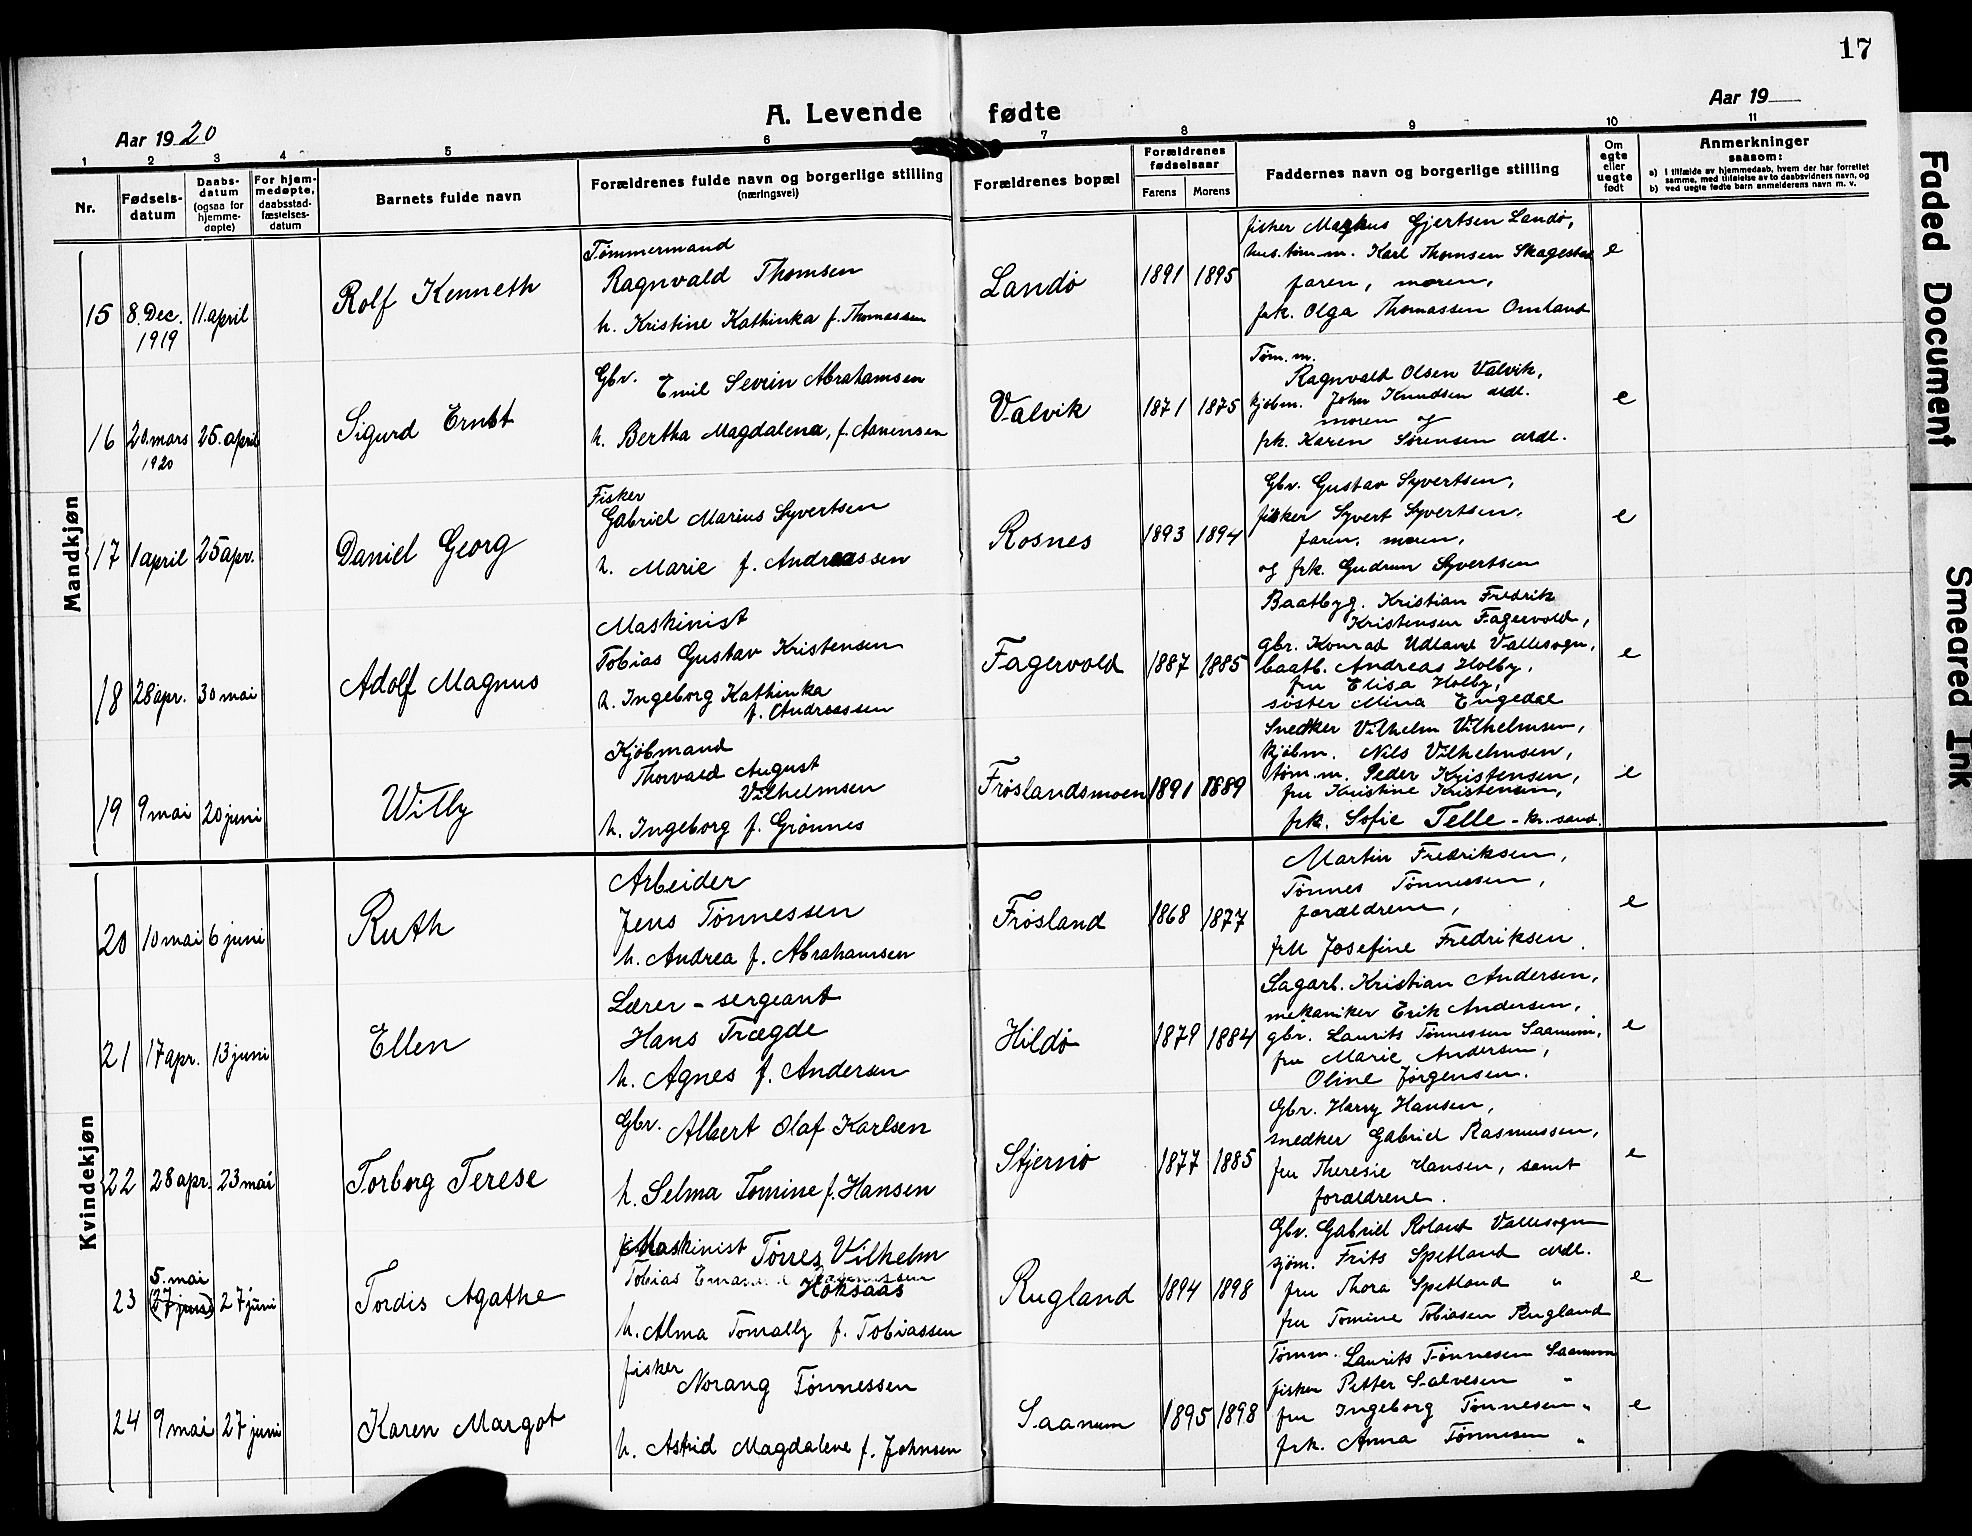 17
A. Levende fødte
Aar 1920
Aar 19
1 2 3 4 5 6 7 8 9 10 11
Nr.
Fødsels-
datum
Daabs-
datum
(ogsaa for
hjemme-
døpte)
For hjem-
medøpte,
daabsstad-
fæstelses-
datum
Barnets fulde navn
Forældrenes fulde navn og borgerlige stilling
(næringsvei)
Forældrenes bopæl
Forældrenes
fødselsaar
Farens Morens
Faddernes navn og borgerlige stilling
Om
egte
eller
uegte
født
Anmerkninger
saasom:
a) I tilfælde av hjemmedaab, hvem der har forrettet
samme, med tilføielse av to daabsvidners navn, og
b) ved uegte fødte barn anmelderens navn m. v.
Mandkjøn
15 8. Dec. 1919 11. april
Rolf Kenneth
Tømmermand
Ragnvald Thomsen
h. Kristine Kathinka f. Thomassen
Landö 1891 1895
fisker Markus Gjertsen Landö,
hus.tøm.m. Karl Thomsen Skagestad
faren, moren,
frk. Olga Thomassen Omland
e
16 20. mars 1920 25. april
Sigurd Ernst
Gbr. Emil Sevrin Abrahamsen
h. Bertha Magdalena, f. Aanensen
Valvik 1871 1875
Tøm. m.
Ragnvald Olsen Valvik,
kjøbm. John Knudsen ardl.
moren og
frk. Karen Sørensen ardl.
e
17 1 april 25 apr.
Daniel Georg
Fisker
Gabriel Marius Syvertsen
h. Marie f. Andreassen
Rosnes 1893 1894
Gbr. Gustav Syvertsen,
fisker Syvert Syvertsen,
faren, moren,
og frk. Gudrun Syvertsen
e
18 28 apr. 30 mai
Adolf Magnus
Maskinist
Tobias Gustav Kristensen
h. Ingeborg Kathinka
f. Andreassen
Fagervold 1887 1885
Baatbyg. Kristian Fredrik
Kristensen Fagervold,
gbr. Konrad Udland Vallesogn,
baatb. Andreas Holby,
fru Elisa Holby,
søster Mina Engedal
e
19 9 mai 20 juni
Willy
Kjøbmand
Thorvald August
Vilhelmsen
h. Ingeborg f. Grønnes
Frøslandsmoen 1891 1889
Snedker Vilhelm Vilhelmsen,
kjøbm. Nils Vilhelmsen,
tøm.m. Peder Kristensen,
fru Kristine Kristensen,
frk. Sofie Telle - kr.sand.
e
Kvindekjøn
20 10 mai 6 juni
Ruth
Arbeider
Jens Tønnessen
h. Andrea f. Abrahamsen
Frøsland 1868 1877
Martin Fredriksen,
Tønnes Tønnessen,
forældrene,
fru Josefine Fredriksen.
e
21 17 apr. 13 juni
Ellen
Lærer - sergeant
Hans Trægde
h. Agnes f. Andersen
Hildö 1879 1884
Sagarb. Kristian Andersen,
mekaniker Erik Andersen,
gbr. Laurits Tønnessen Saanum,
fru Marie Andersen,
Oline Jørgensen.
e
22 28 apr. 23 mai
Torborg Terese
Gbr. Albert Olaf Karlsen
h. Selma Tomine f. Hansen
Stjernö 1877 1885
Gbr. Harry Hansen,
snedker Gabriel Rasmussen,
fru Theresie Hansen, samt
forældrene.
e
23 5. mai (27 juni) 27 juni
Tordis Agathe
Maskinist Tørres Vilhelm
Tobias
Höksaas
h. Alma Tomally f. Tobiassen
Rugland 1894 1898
Gbr. Gabriel Roland Vallesogn
sjøm. Frits Spetland ardl.
fru Thora Spetland "
fru Tomine Tobiasen Rugland
e
24 9 mai 27 juni
Karen Margot
fisker
Norang Tønnessen
h. Astrid Magdalene f. Johnsen
Saanum 1895 1898
Tømm. Laurits Tønnesen Saanum
fisker Petter Salvesen "
fru Ingeborg Tønnesen "
frk. Anna Tønnesen "
e
Faded Document
Smeared Ink